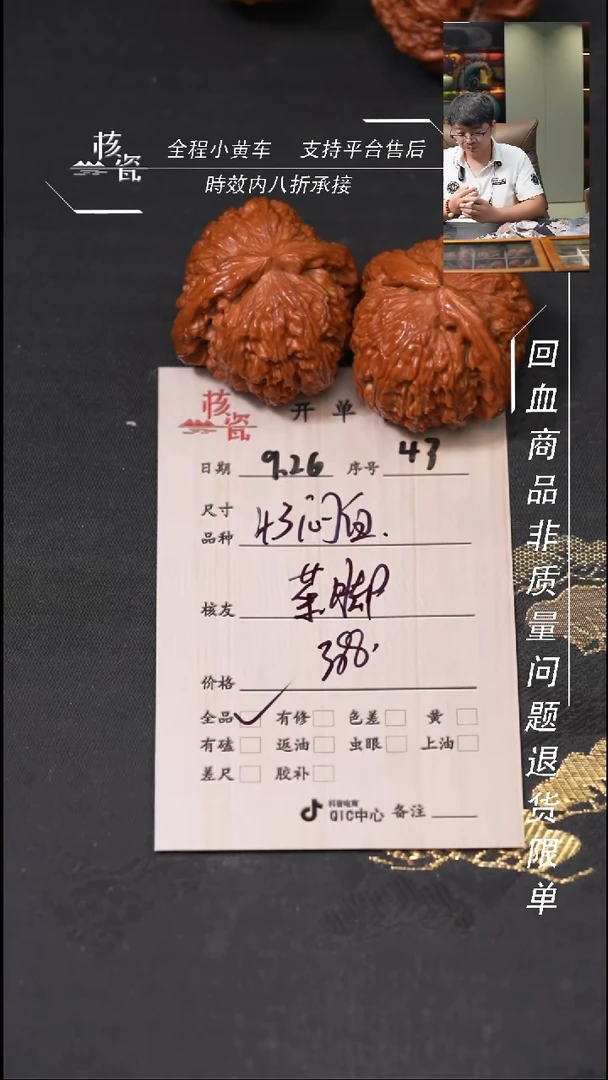 核瓷
全程小黄车 支持平台售后
時效内八折承接
回血商品非质量问题退货限单
核瓷 开单
日期 9.26 序号 43
尺寸
品种 43闷
核友 菜脚
价格 388.
全品 有修 色差 黄
有磕 返油 虫眼 上油
差尺 胶补
抖音电商
QIC中心 备注